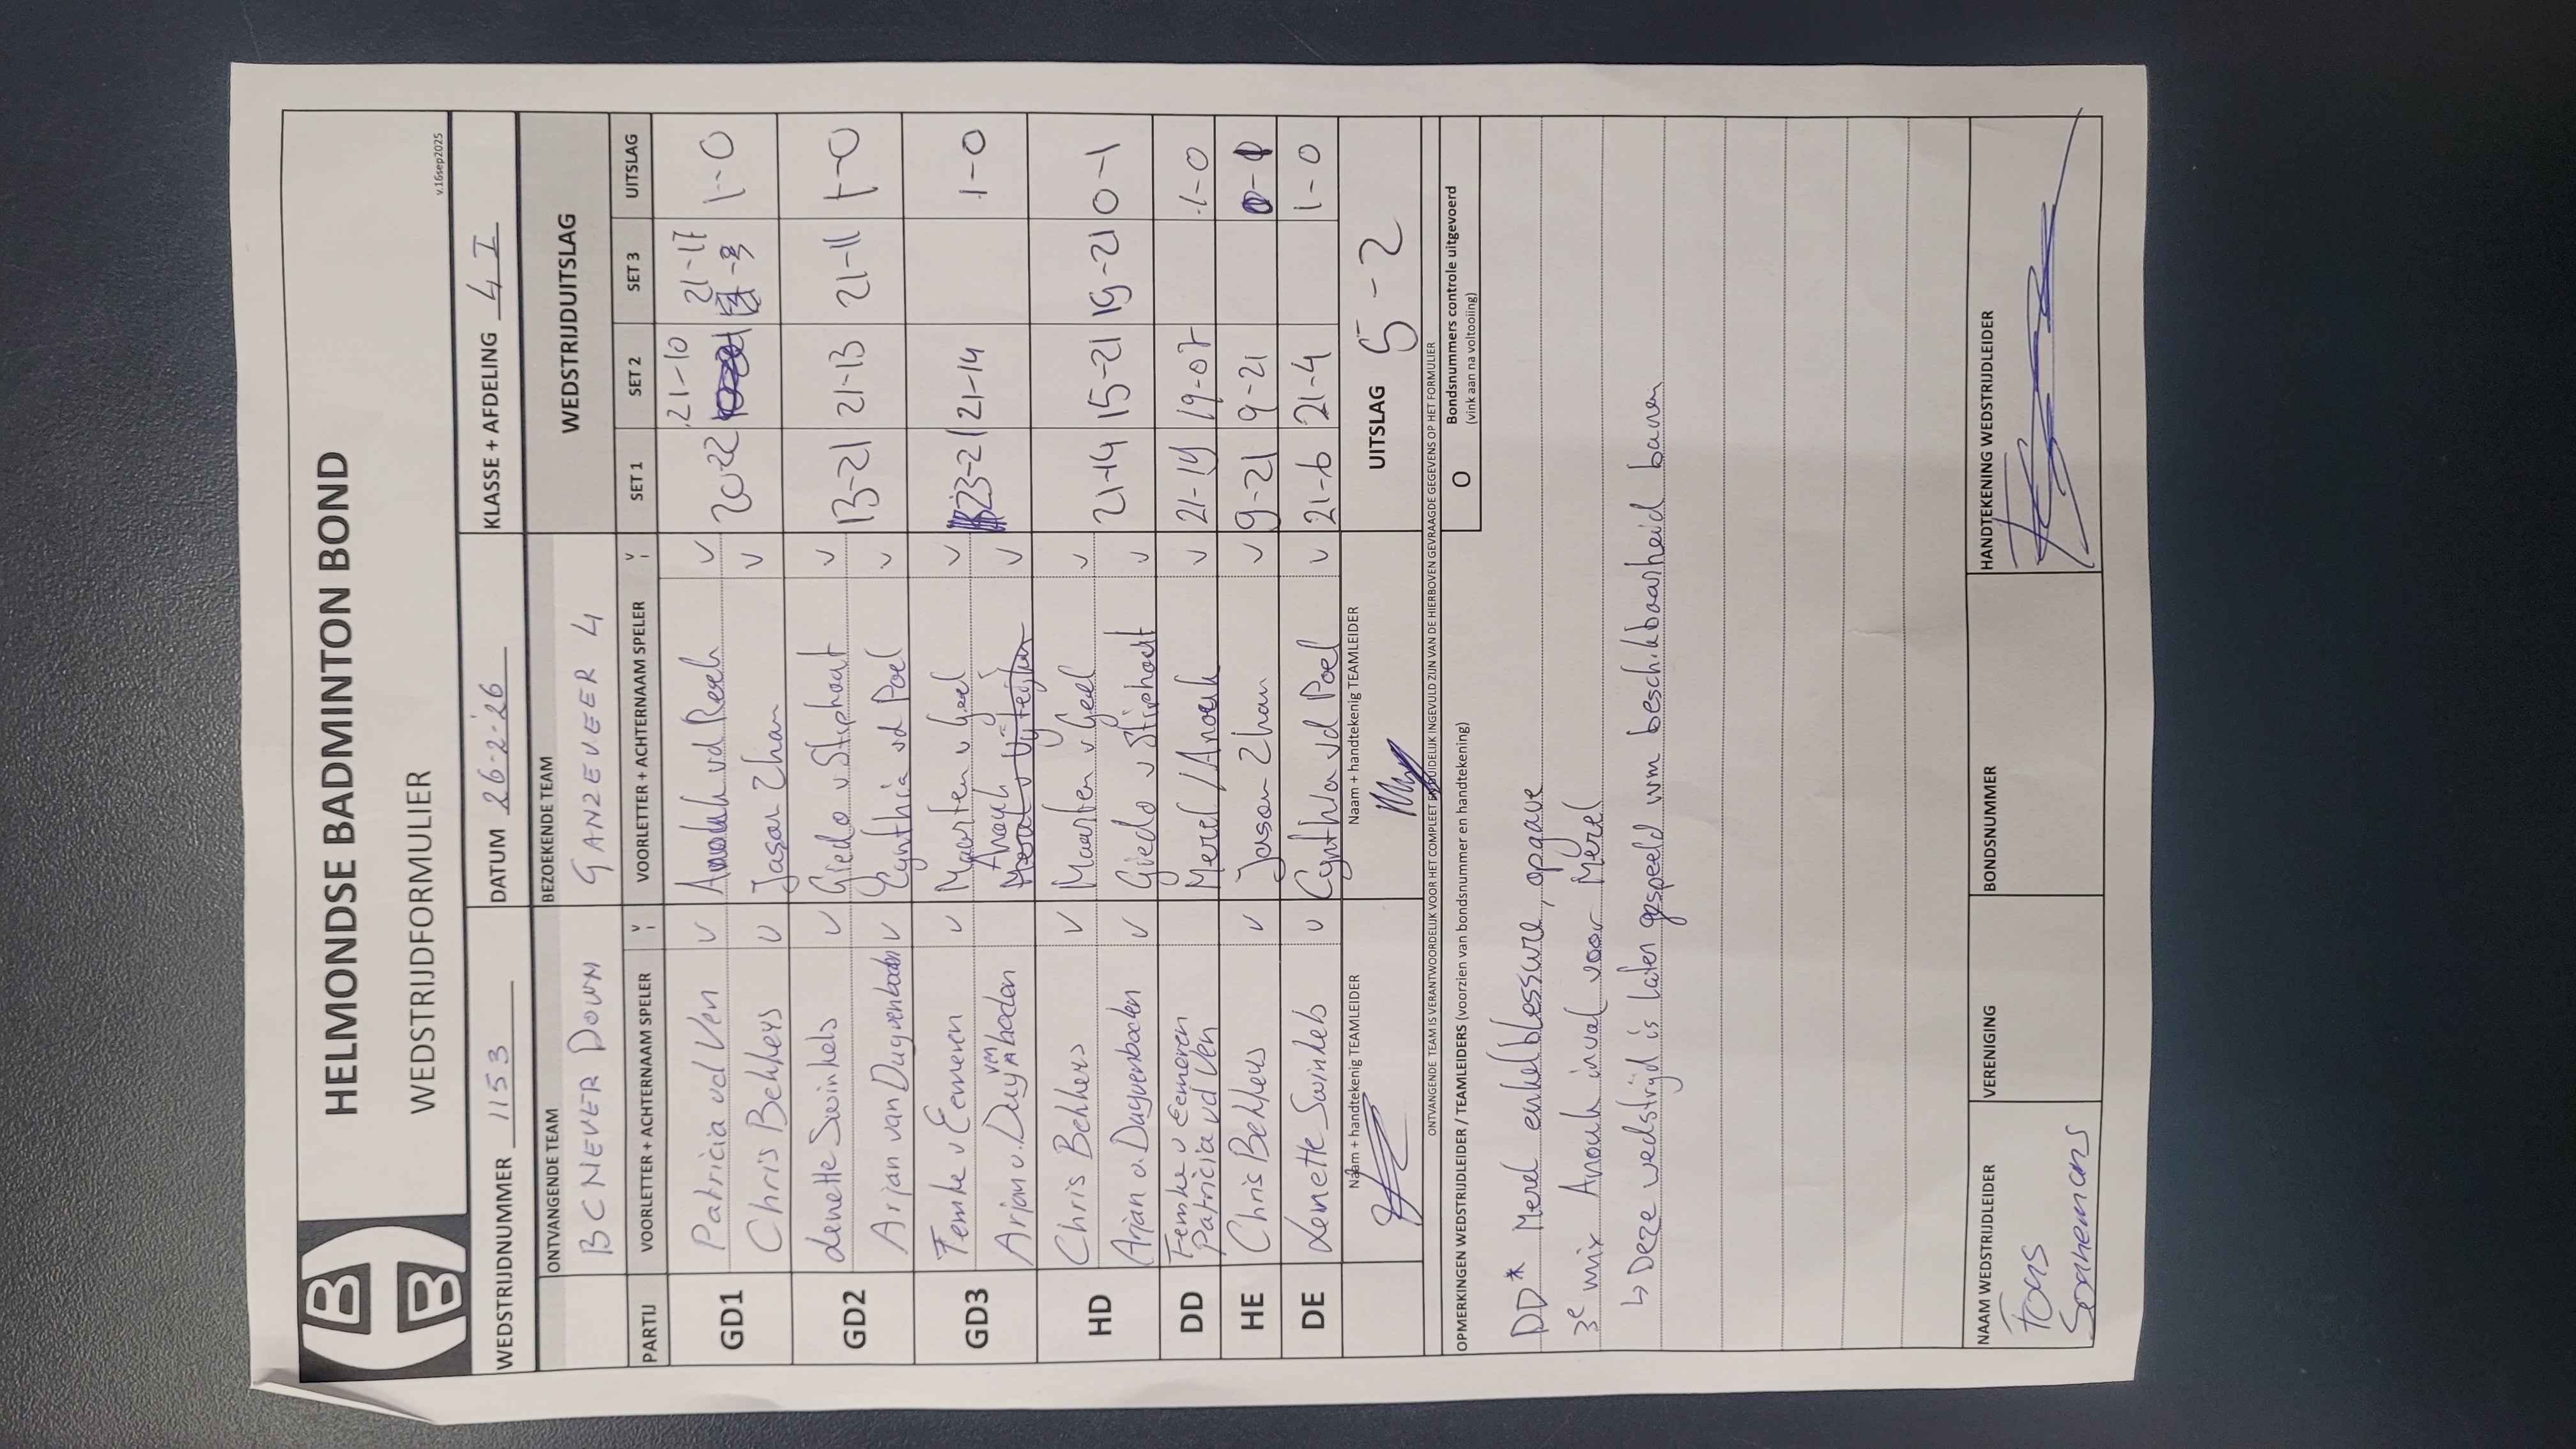 HELMONDSE BADMINTON BOND
WEDSTRIJDFORMULIER
v.16sep2025
WEDSTRIJDNUMMER 1153 DATUM 26-2-'26 KLASSE + AFDELING 4 I
ONTVANGENDE TEAM BEZOEKENDE TEAM WEDSTRIJDUITSLAG
BC NEVER DOWN GANZEVEER 4
PARTIJ VOORLETTER + ACHTERNAAM SPELER V VOORLETTER + ACHTERNAAM SPELER V SET 1 SET 2 SET 3 UITSLAG
GD1 Patricia vd Ven V Anouk vd Reek V 20-22 21-10 21-17 1-0
Chris Bekkers V Jason Zhan V
GD2 Lenette Swinkels V Giedo v Stiphout V 13-21 21-13 21-11 1-0
Arjan van Duijvenboden V Cynthia vd Poel V
GD3 Femke v Eemeren V Maarten v Geel V 23-21 21-14 1-0
Arjan v. Duyvenboden Anouk V
HD Chris Bekkers V Maarten v Geel V 21-14 15-21 19-21 0-1
Arjan v. Duyvenboden V Giedo v Stiphout V
DD Femke v Eemeren Merel / Anouk V 21-19 19-07 1-0
Patricia vd Ven
HE Chris Bekkers V Jason Zhan V 9-21 9-21 0-1
DE Lenette Swinkels V Cynthia vd Poel V 21-6 21-4 1-0
Naam + handtekenig TEAMLEIDER Naam + handtekenig TEAMLEIDER UITSLAG 5-2
ONTVANGENDE TEAM IS VERANTWOORDELIJK VOOR HET COMPLEET EN DUIDELIJK INGEVULD ZIJN VAN DE HIERBOVEN GEVRAAGDE GEGEVENS OP HET FORMULIER
OPMERKINGEN WEDSTRIJDLEIDER / TEAMLEIDERS (voorzien van bondsnummer en handtekening)
O Bondsnummers controle uitgevoerd
(vink aan na voltooiing)
DD* Merel enkelblessure, opgave
3e mix Anouk inval voor Merel
↳ Deze wedstrijd is laten gespeeld wm beschikbaarheid banen
NAAM WEDSTRIJDLEIDER VERENIGING BONDSNUMMER HANDTEKENING WEDSTRIJDLEIDER
Fons
Sonnemans